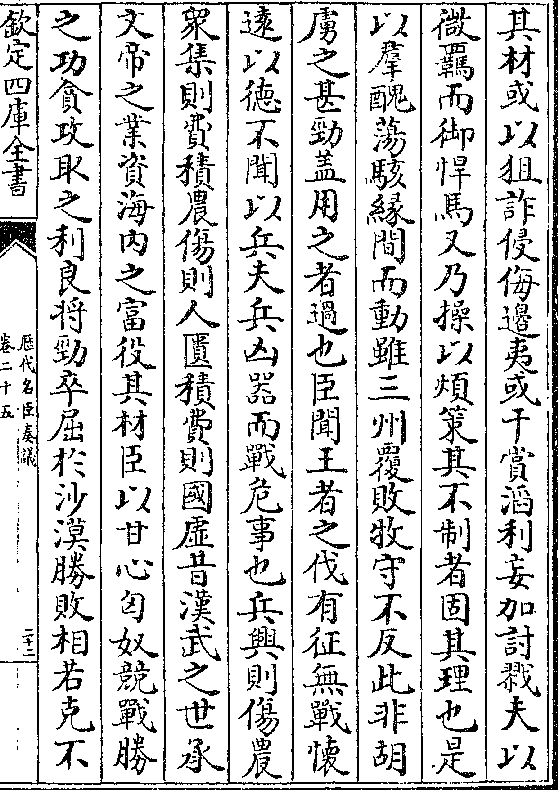 其材或以狙詐侵侮邊夷或干賞滔利妄加討戮夫以
微羈而御悍馬又乃操以煩策其不制者固其理也是
以羣醜蕩駭緣間而動雖三州覆敗牧守不反此非胡
虜之甚勁盖用之者過也臣聞王者之伐有征無戰懷
遠以徳不聞以兵夫兵凶器而戰危事也兵興則傷農
衆集則費積農傷則人匱積費則國虛昔漢武之世承
文帝之業資海内之富役其材臣以甘心匈奴競戰勝
之功貪攻取之利良将勁卒屈於沙漠勝敗相若克不
欽定四庫全書
歷代名臣奏議
卷二十五
二十二